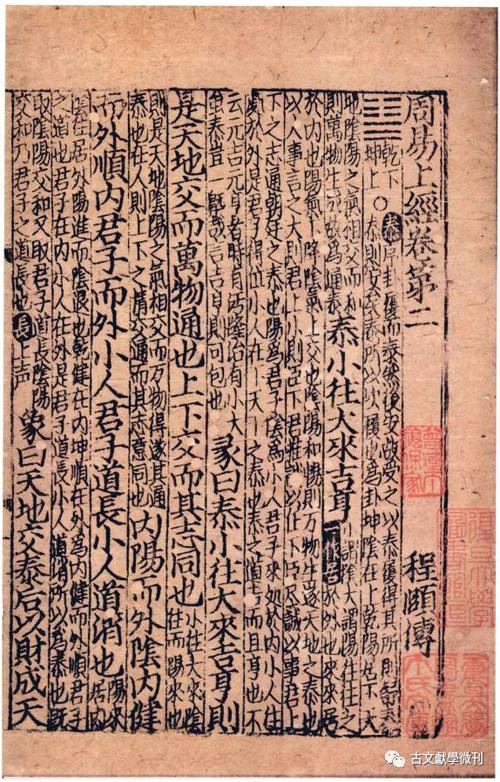 周易上經卷第二 程頤傳
乾下
坤上
○泰序卦履而泰然後安故受之以泰履得其所則舒泰
泰則安矣泰所以次履也為卦坤陰在上乾陽居下天
地陰陽之氣相交而和
則萬物生成故為通泰
泰小往大來吉亨
小謂陰大謂陽往往之
於外也來來居
於內也陽氣下降陰氣上交也陰陽和暢則万物生遂天地之泰也
以人事言之大則君上小則臣下君推誠以任下臣盡誠以事君上
下之志通朝廷之泰也陽為君子陰為小人君子來処於內小人往
處於外是君子得位小人在下天下之泰也泰之道吉而且亨也不
云元吉元亨者時有汙隆治有小大
雖泰豈一槩哉言吉亨則可包也
彖曰泰小往大來吉亨則
是天地交而萬物通也上下交而其志同也
小往大來陰
往而陽來也
則是天地陰陽之氣相交而万物得遂其通
泰也在人則上下之情交通而其志意同也
內陽而外陰內健
而外順內君子而外小人君子道長小人道消也
陽來
居內陰往
居外陽進而陰退也乾健在內坤順在外為內健而外順君子
之道也君子在內小人在外是君子道長小人道消所以為泰也既
取陰陽交和又取君子道長陰陽
交和乃君子之道長也
長上声
象曰天地交泰后以財成天
古文獻學微刊